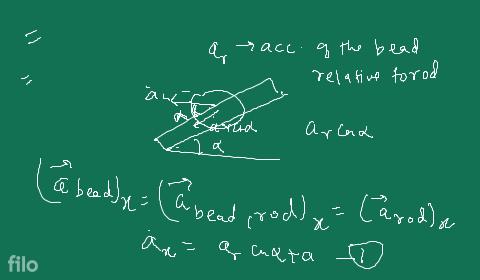 =
=
aᵣ → acc. of the bead
relative to rod
a
α
aᵣ cosα
α
aᵣ cosα
(a⃗ bead)ₓ = (a⃗ bead, rod)ₓ = (a⃗ rod)ₓ
aₓ = aᵣ cosα + a —①
filo